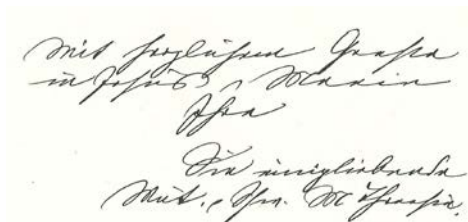 Mit herzlichem Gruße
in Jesus, Maria
Ihre
Sie innigliebende
Mut. M. Theresia